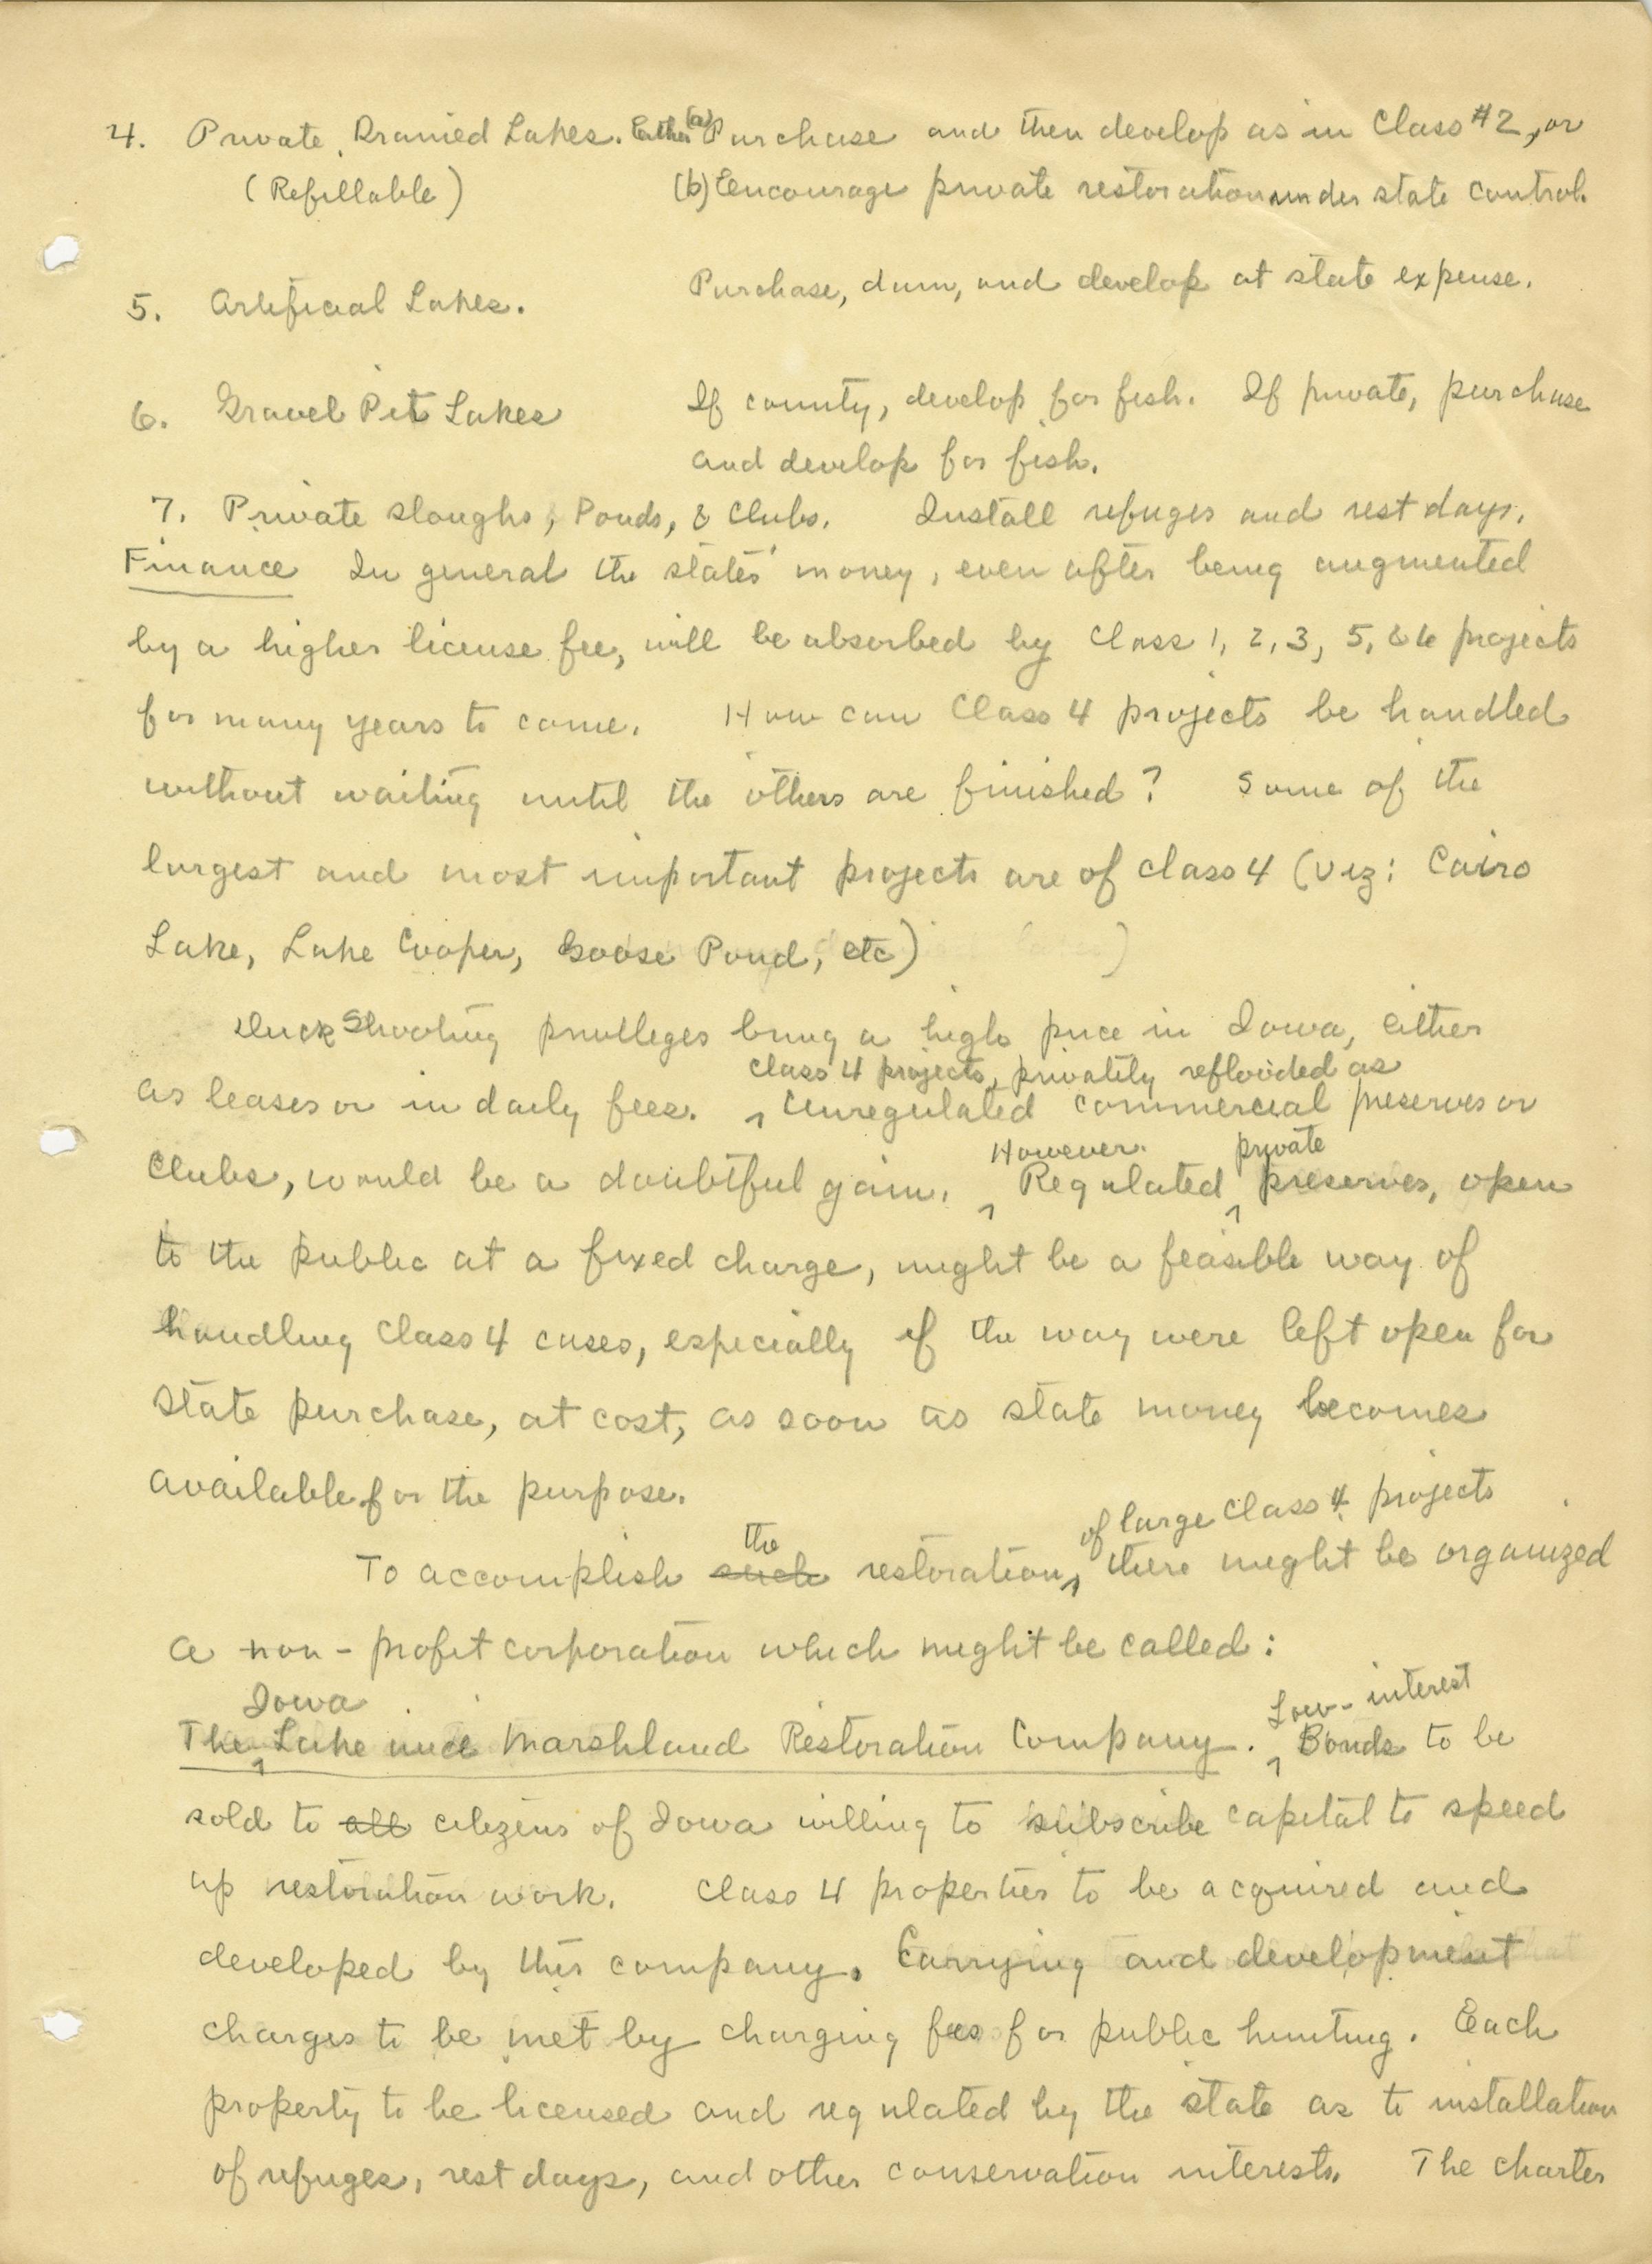 4. Private Drained Lakes. Either (a) Purchase and then develop as in Class #2, or
(Refillable) (b) Encourage private restoration under state control.
5. Artificial Lakes. Purchase, dam, and develop at state expense.
6. Gravel Pit Lakes If county, develop for fish. If private, purchase
and develop for fish.
7. Private sloughs, Ponds, & Clubs. Install refuges and rest days.
Finance In general the states' money, even after being augmented
by a higher license fee, will be absorbed by Class 1, 2, 3, 5, & 6 projects
for many years to come. How can Class 4 projects be handled
without waiting until the others are finished? Some of the
largest and most important projects are of class 4 (viz: Cairo
Lake, Lake Cooper, Goose Pond, etc)
Duck Shooting privileges bring a high price in Iowa, either
Class 4 projects, privately reflooded as
as leases or in daily fees. Unregulated commercial preserves or
However private
Clubs, would be a doubtful gain. Regulated preserves, open
to the public at a fixed charge, might be a feasible way of
handling Class 4 cases, especially if the way were left open for
state purchase, at cost, as soon as state money becomes
available for the purpose.
the of large Class 4 projects
To accomplish such restoration, there might be organized
a non-profit corporation which might be called:
Iowa Low-interest
The Lake and Marshland Restoration Company. Bonds to be
sold to all citizens of Iowa willing to subscribe capital to speed
up restoration work. Class 4 properties to be acquired and
developed by this company. Carrying and development
charges to be met by charging fees for public hunting. Each
property to be licensed and regulated by the state as to installation
of refuges, rest days, and other conservation interests. The charter